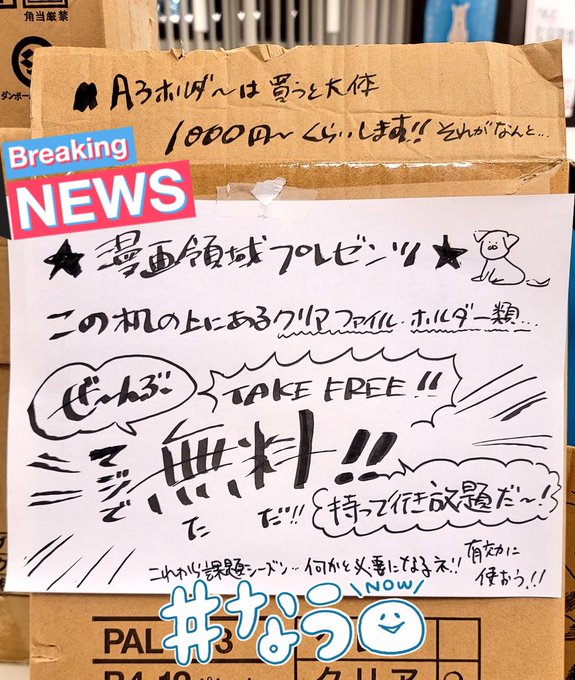 角当厳禁
ダンボール
A3ホルダーは買うと大体
1000円〜くらいします!!それがなんと...
Breaking
NEWS
★漫画領域プレゼンツ★
この机の上にあるクリアファイル・ホルダー類...
ぜ〜んぶ〜
TAKE FREE!!
マジで
無料!!
ただ!!
持って行き放題だ〜!
これから課題シーズン...何かと必要になるネ!!
有効に
使おう!!
#なう
NOW
PAL
3
クリア